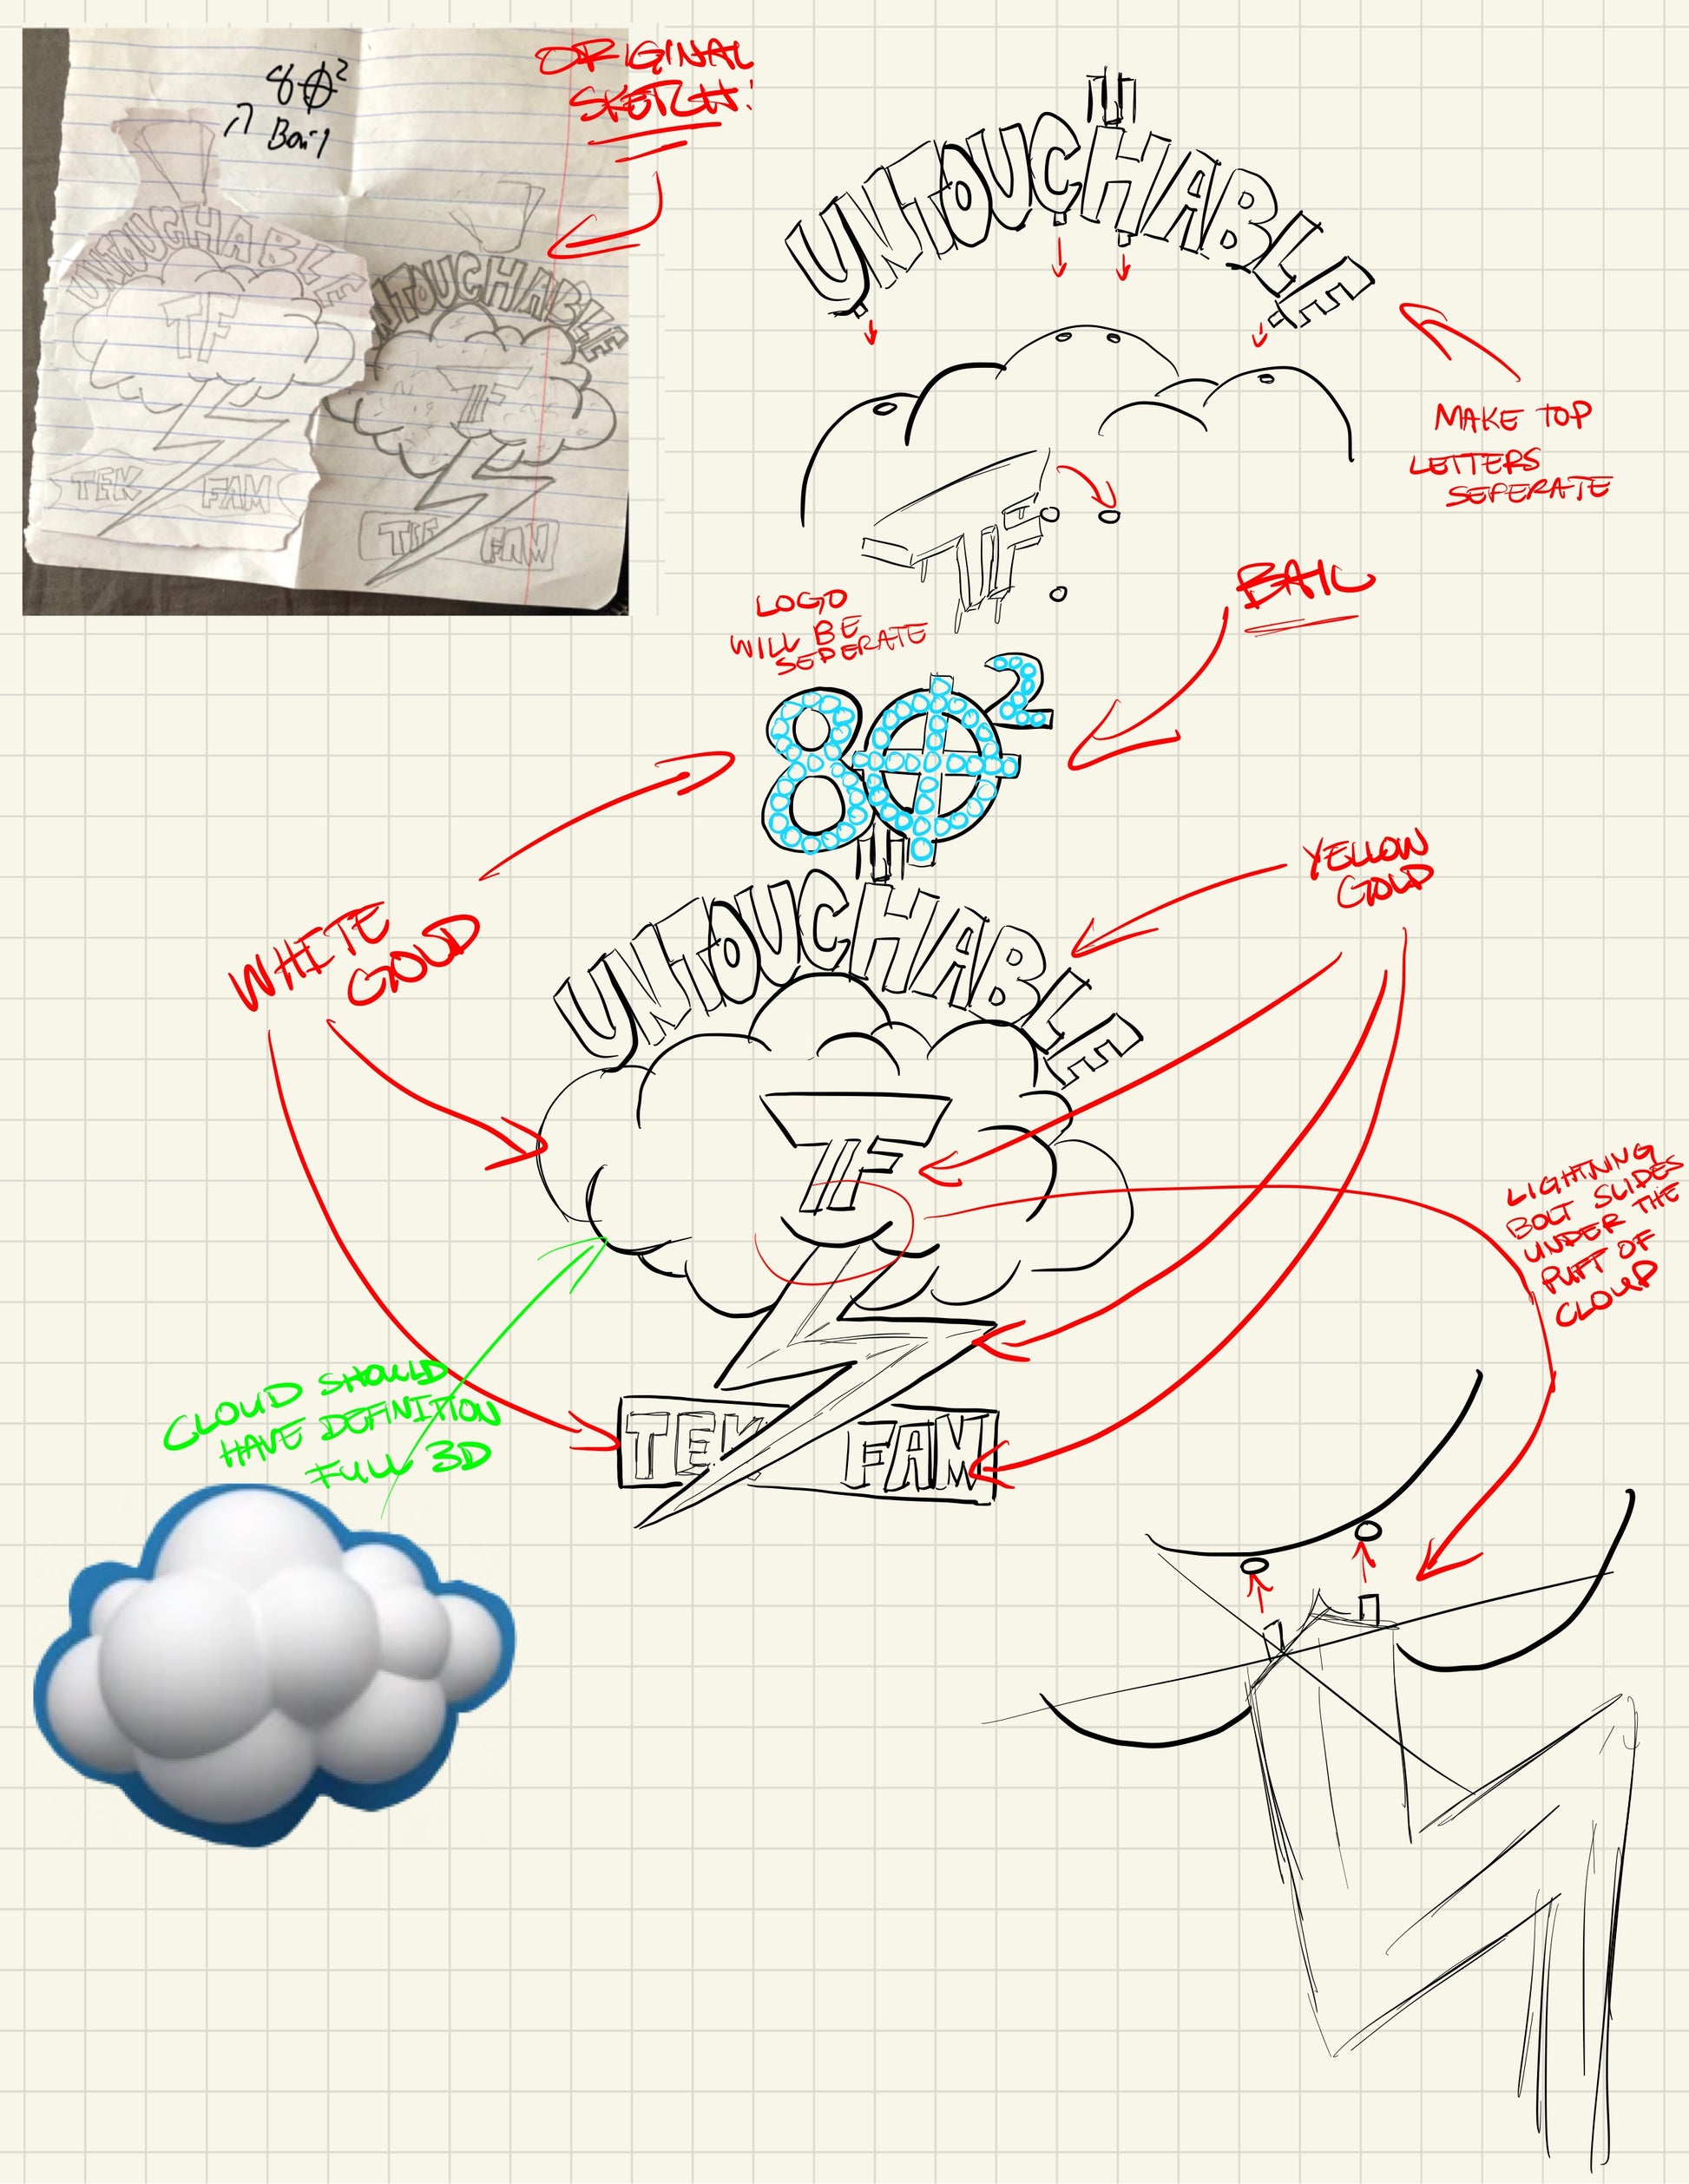 8Ø²
Bail
ORIGINAL
SKETCH!
UNTOUCHABLE
TF
TEK FAM
UNTOUCHABLE
TF
TEK FAM
UNTOUCHABLE
MAKE TOP
LETTERS
SEPERATE
TF
LOGO
WILL BE
SEPERATE
BAIL
8Ø²
WHITE
GOLD
YELLOW
GOLD
UNTOUCHABLE
TF
LIGHTNING
BOLT SLIDES
UNDER THE
PUFF OF
CLOUD
CLOUD SHOULD
HAVE DEFINITION
FULL 3D
TEK FAM